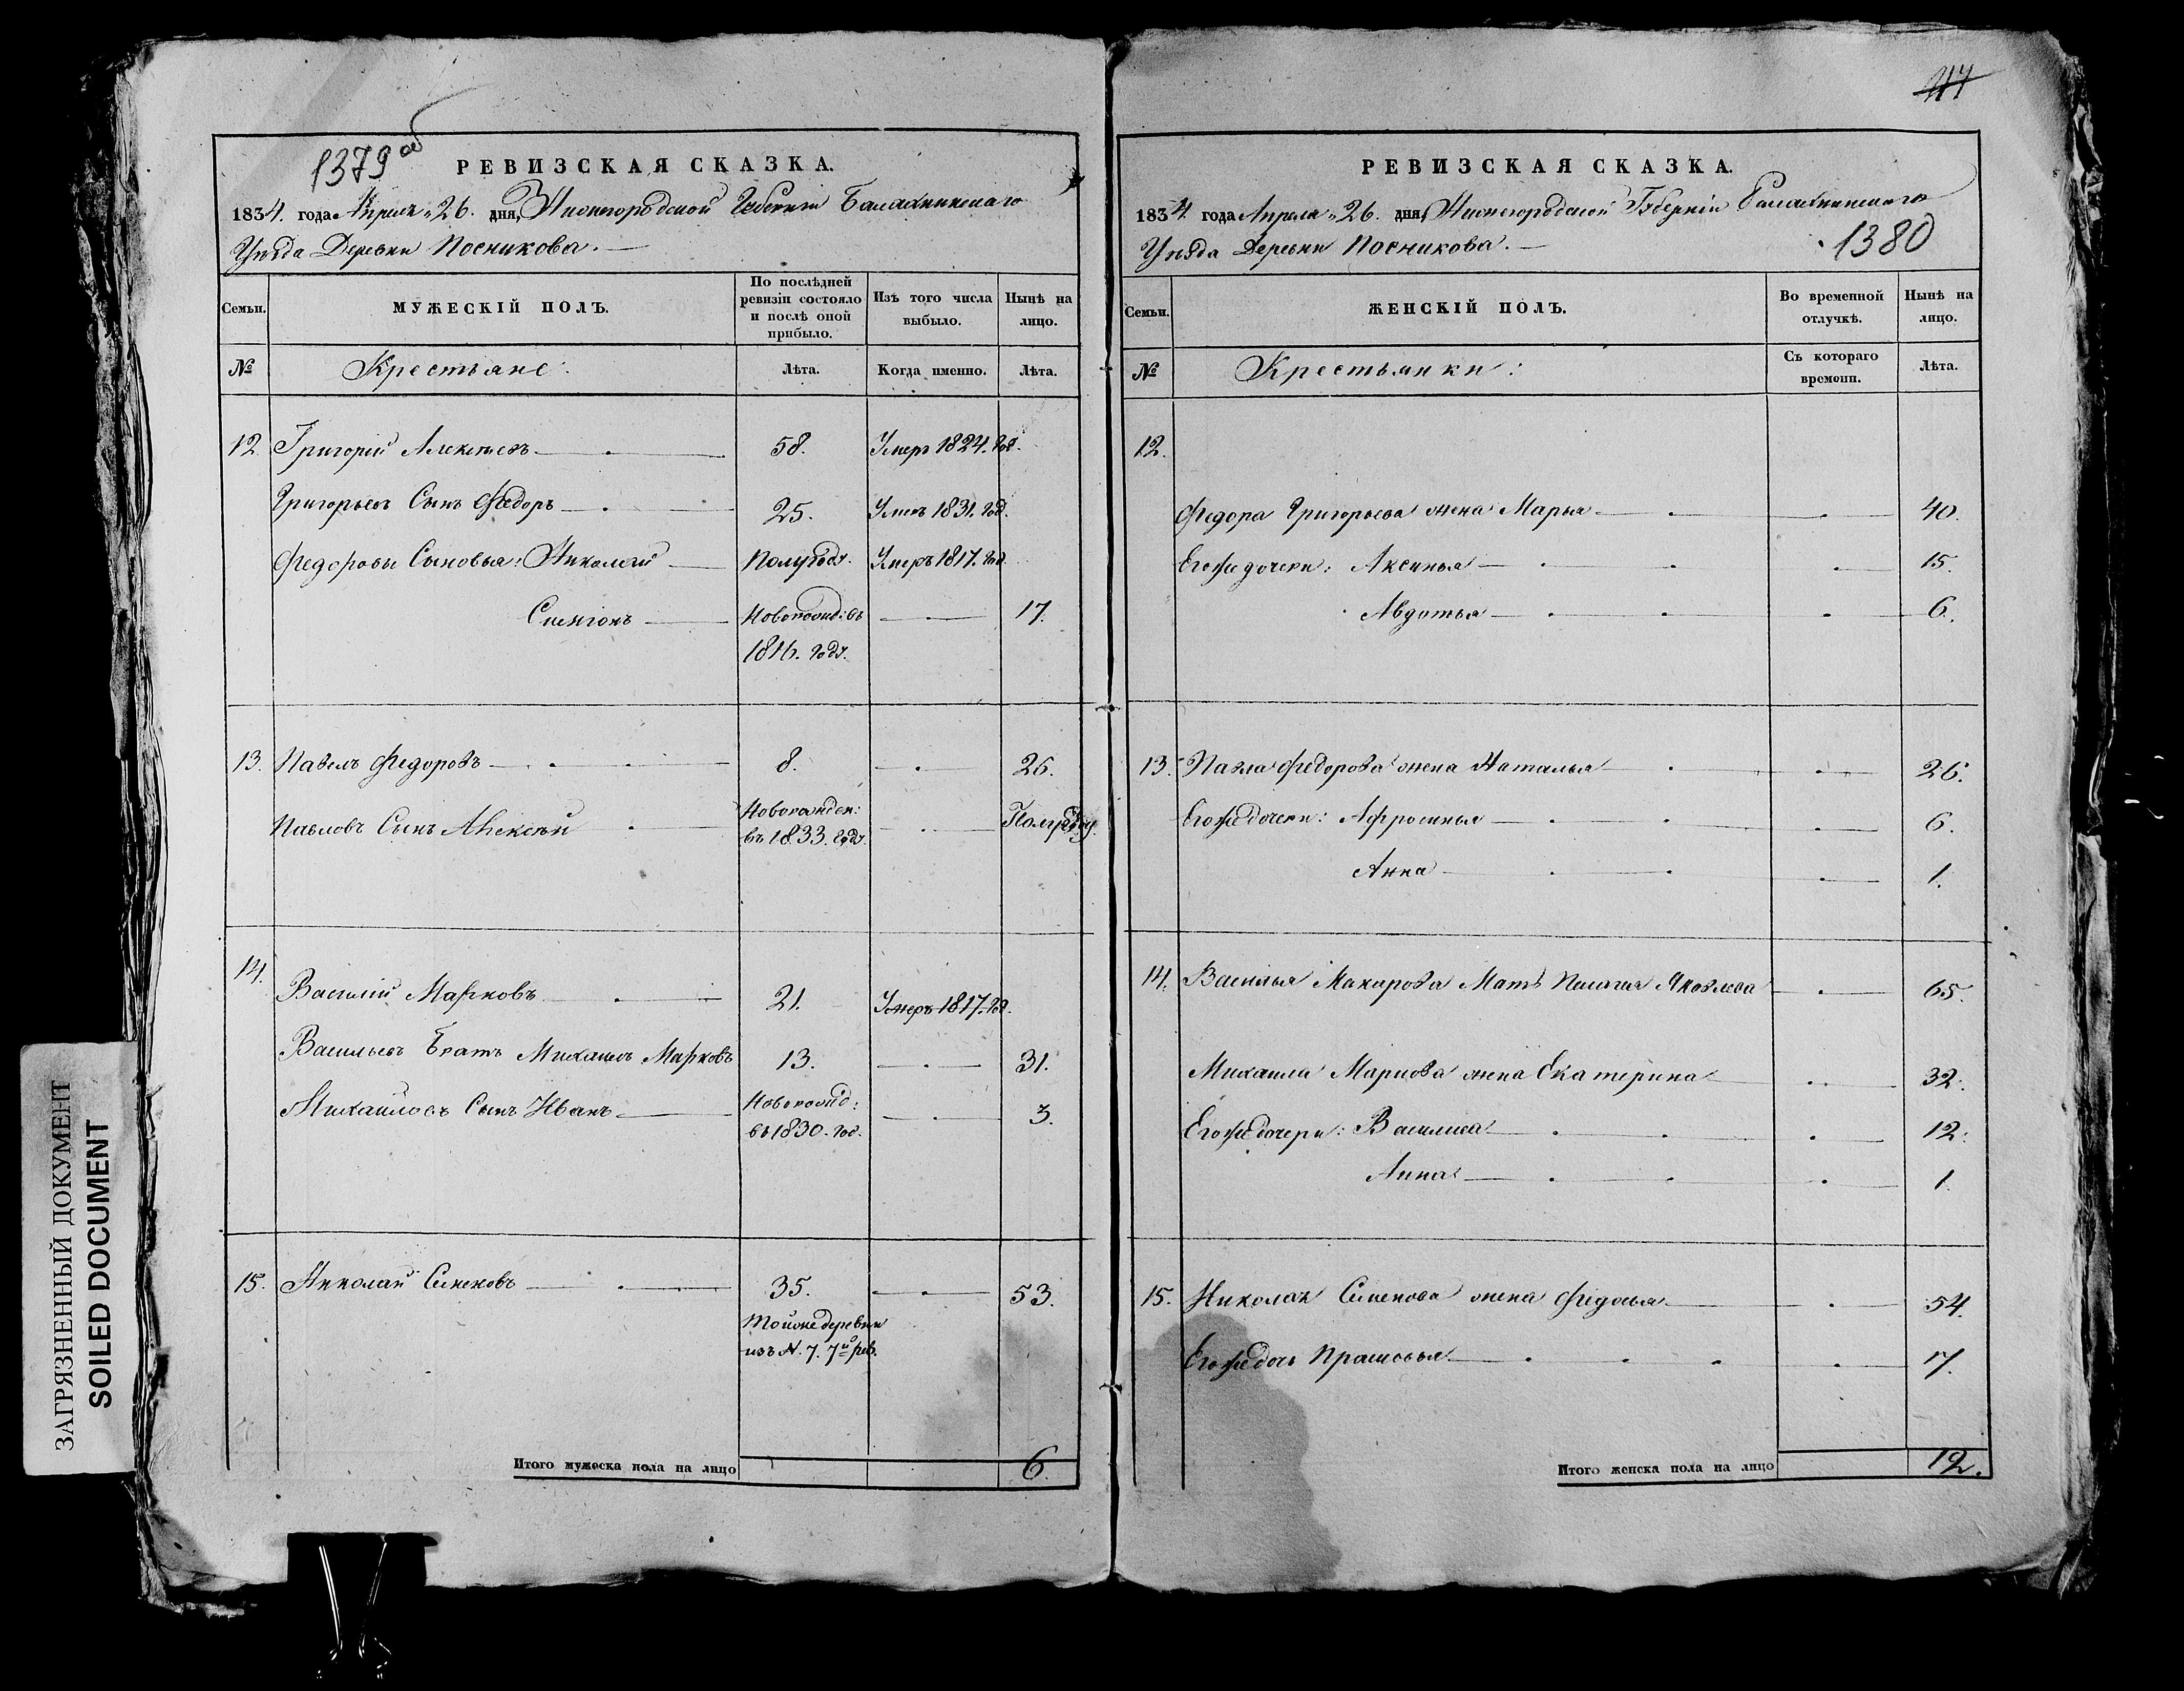 1379 об
РЕВИЗСКАЯ СКАЗКА.
1834. года Апреля 26. дня, Нижегородской Губернiи Балахнинскаго
Уѣзда Деревни Посникова.
Семьи.
МУЖЕСКІЙ ПОЛЪ.
По послѣдней ревизіи состояло и послѣ оной прибыло.
Изъ того числа выбыло.
Нынѣ на лицо.
№
Крестьяне:
Лѣта.
Когда именно.
Лѣта.
12. Григорiй Алексѣевъ 58. Умеръ 1824. год.
Григорьевъ Сынъ Федоръ 25. Умеръ 1831. год.
Федоровы Сыновья: Николай Полугоду. Умеръ 1817. год.
Симiонъ Новорожд: въ 17.
1816. году.
13. Павелъ Федоровъ 8. 26.
Павловъ Сынъ Алексѣй Новорожден: Полугоду.
въ 1833. году.
14. Василiй Марковъ 21. Умеръ 1817. год.
Васильевъ Братъ Михаилъ Марковъ 13. 31.
Михайловъ Сынъ Иванъ Новорожд: 3.
въ 1830. год.
15. Николай Семеновъ 35. 53.
Тойже деревни
изъ N. 7. 7й рев.
Итого мужеска пола на лицо 6.
РЕВИЗСКАЯ СКАЗКА.
1834. года Апреля 26. дня, Нижегородской Губернiи Балахнинскаго
Уѣзда Деревни Посникова.
1380
Семьи.
ЖЕНСКІЙ ПОЛЪ.
Во временной отлучкѣ.
Нынѣ на лицо.
№
Крестьянки:
Съ котораго времени.
Лѣта.
12.
Федора Григорьева жена Марья 40.
Егоже дочери: Аксинья 15.
Авдотья 6.
13. Павла Федорова жена Наталья 26.
Егоже дочери: Афросинья 6.
Анна 1.
14. Василья Макарова Мать Пелагия Яковлева 65.
Михаила Маркова жена Екатерина 32.
Егоже дочери: Василиса 12.
Анна 1.
15. Николая Семенова жена Федосья 54.
Егоже дочь Прасковья 17.
Итого женска пола на лицо 12.
ЗАГРЯЗНЕННЫЙ ДОКУМЕНТ
SOILED DOCUMENT